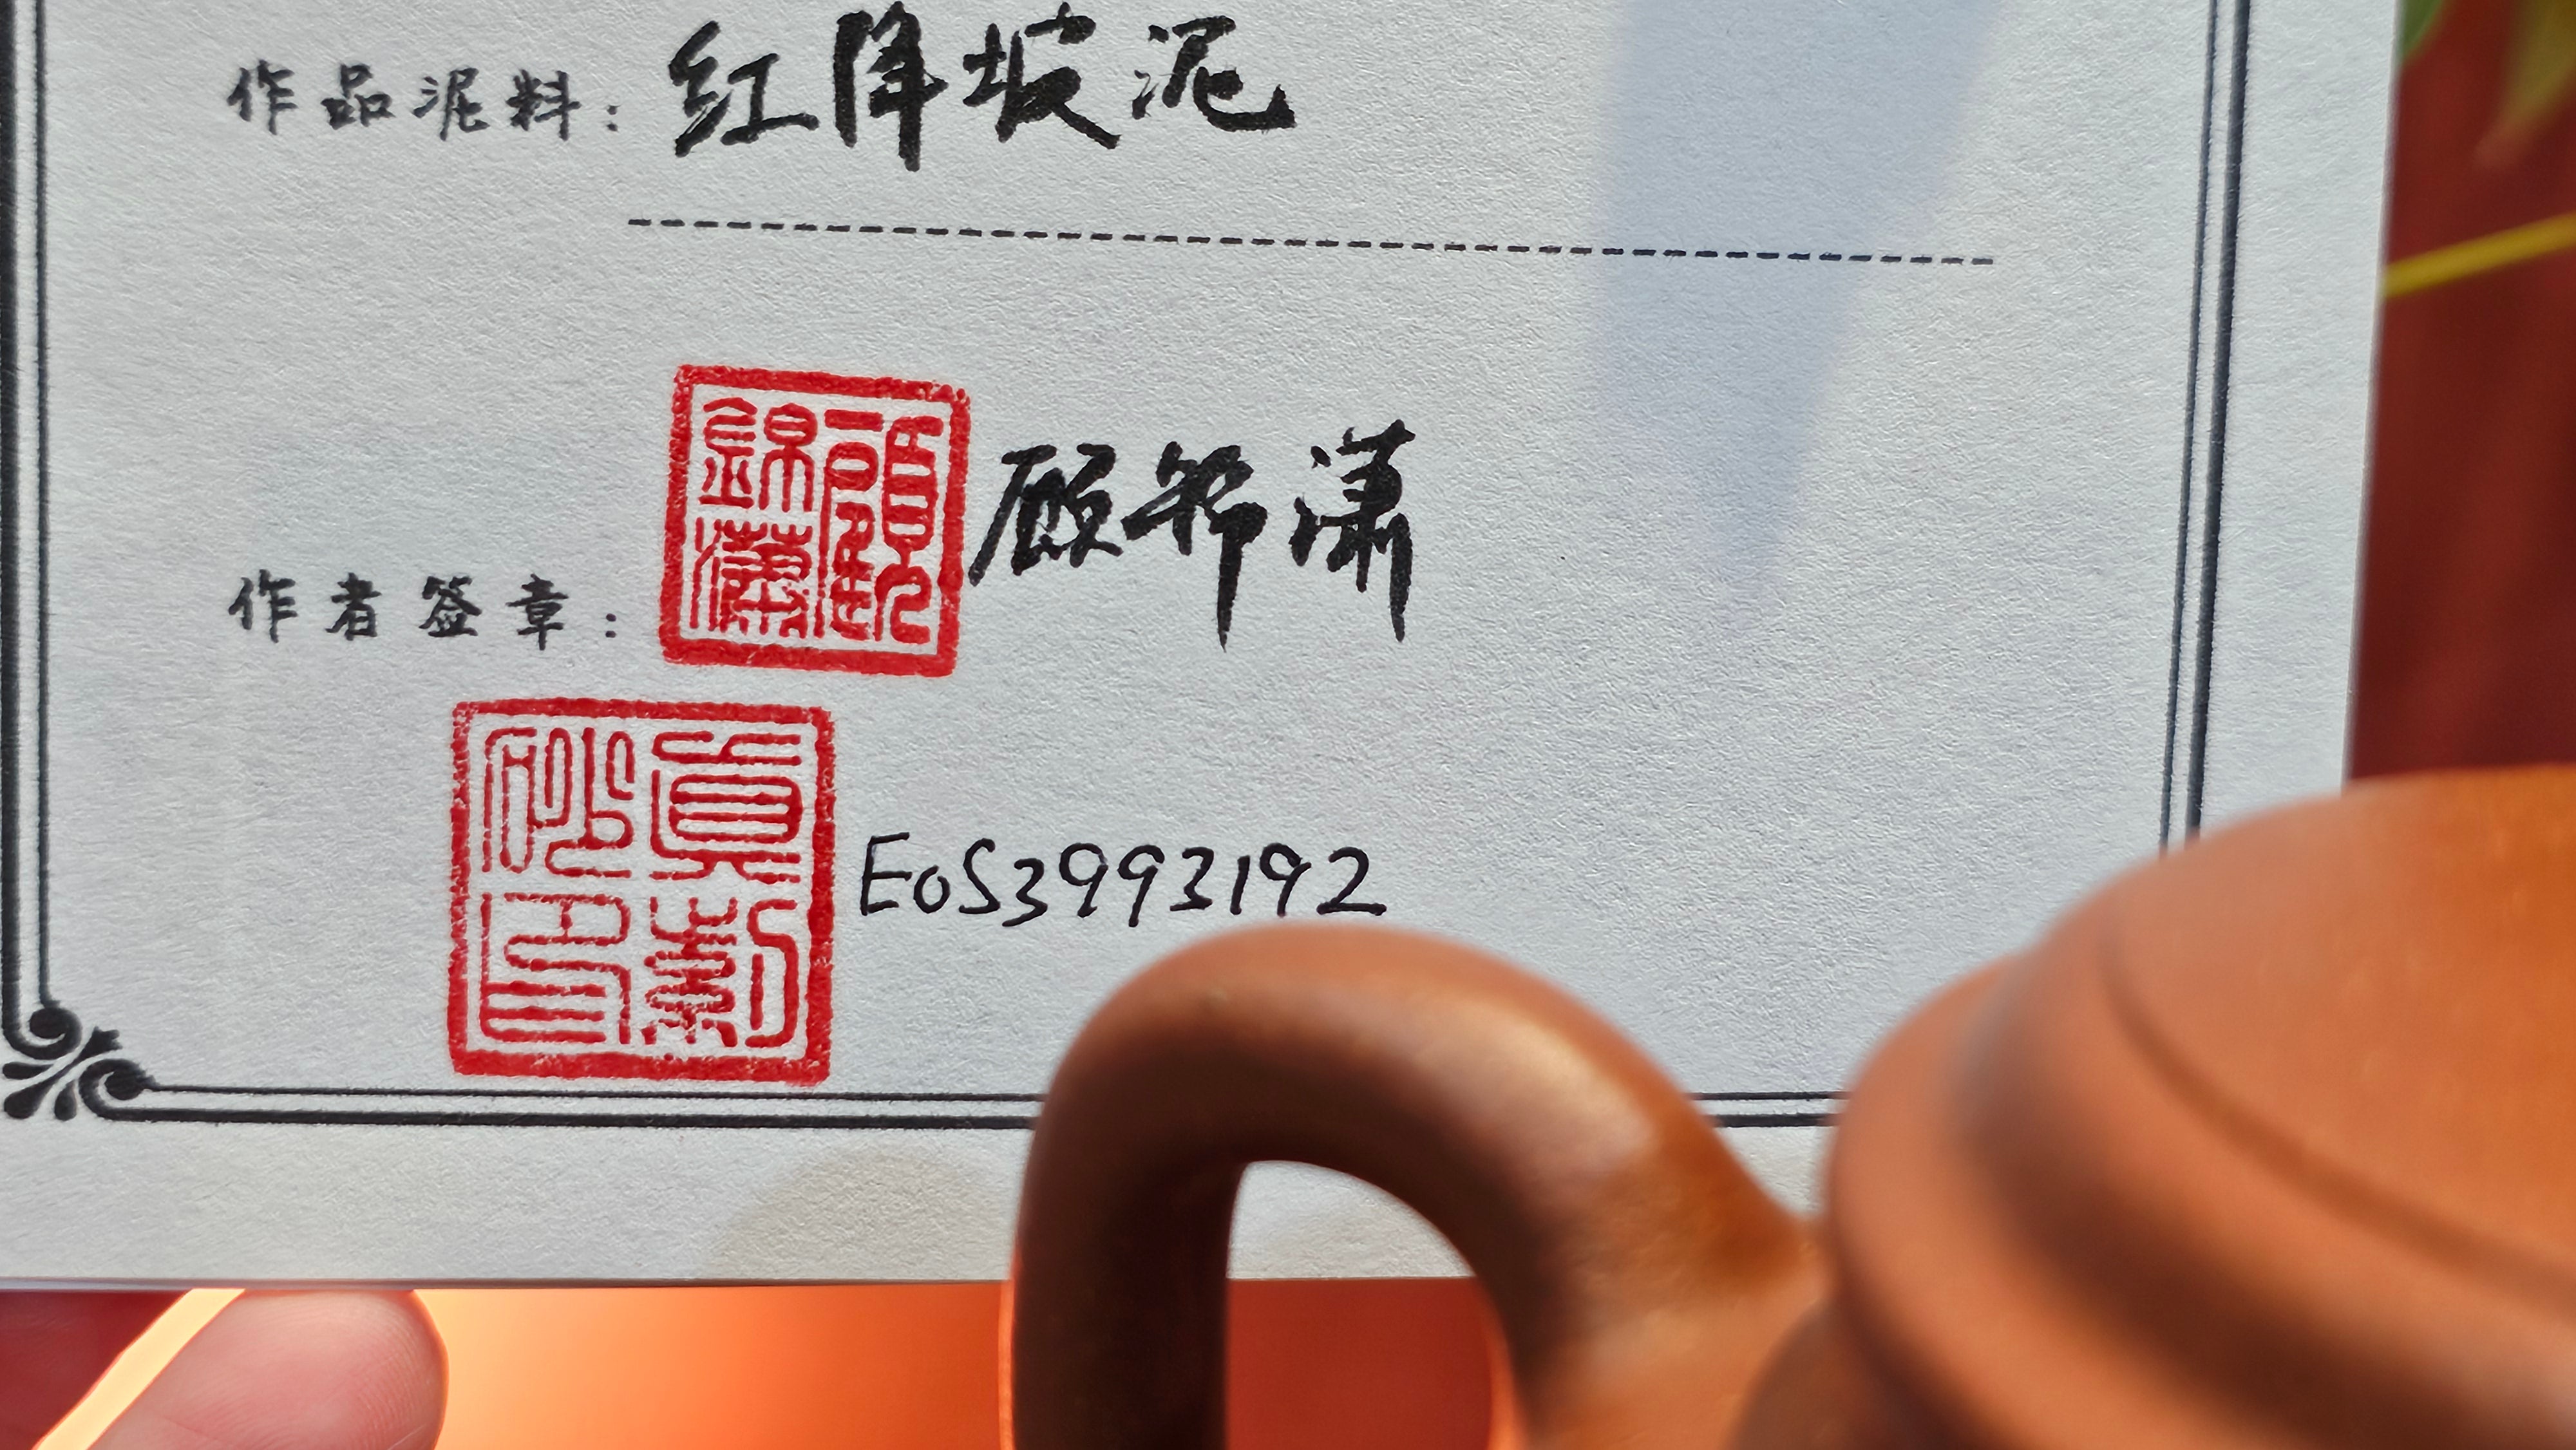 作品泥料：红降坡泥
作者签章：顧錦瀟 顾锦潇
砂印
E0S3993192